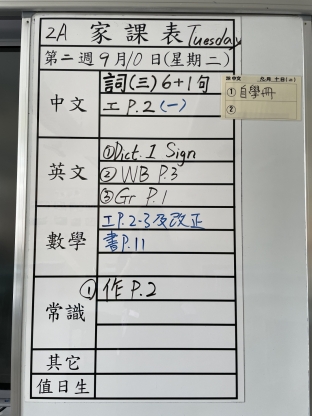 2A 家課表 Tuesday
第二週9月10日(星期二)
中文
詞(三) 6+1句
工 P.2 (一)
① 自學冊
②
英文
①Dict. 1 Sign
② WB P.3
③ Gr P.1
數學
工P.2-3及改正
書P.11
常識
① 作 P.2
其它
值日生